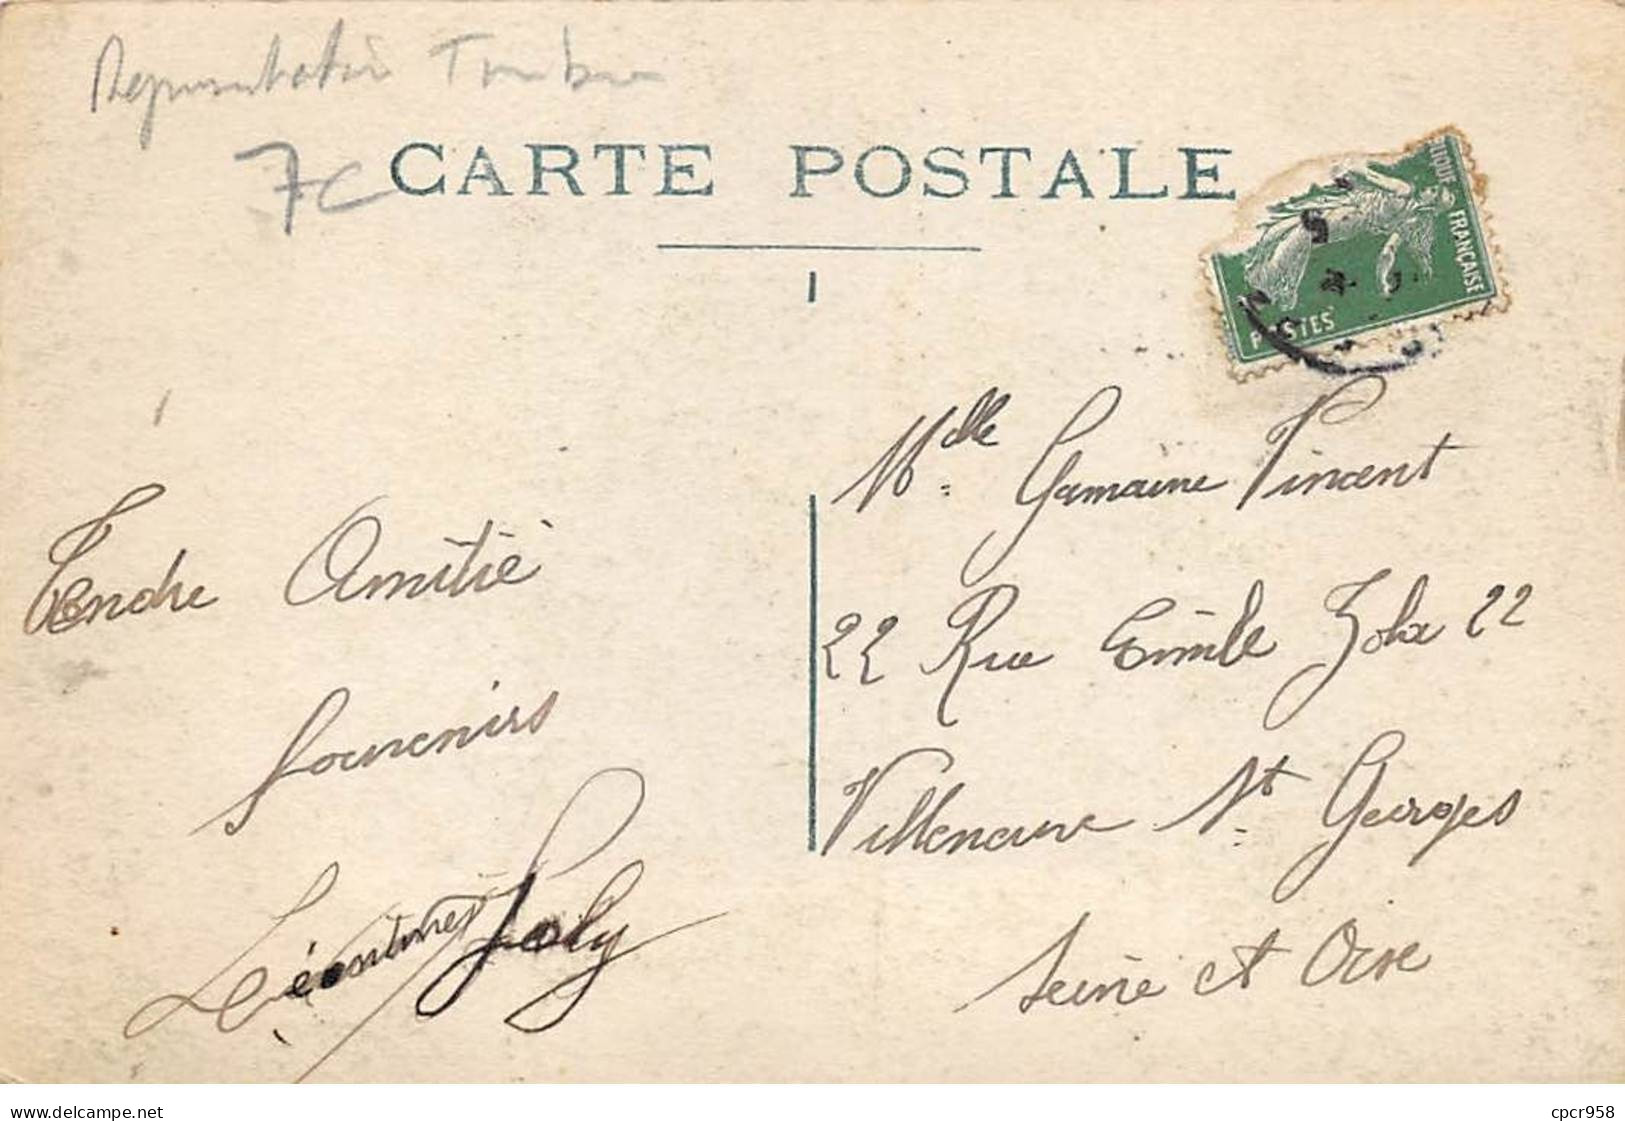 Representation Timbre
7c
CARTE POSTALE
POSTES
FRANÇAISE
Tendre Amitié
Souvenirs
Léontine Joly
Mdlle Germaine Vincent
22 Rue Emile Zola 22
Villeneuve St Georges
Seine et Oise
www.delcampe.net
cpcr958